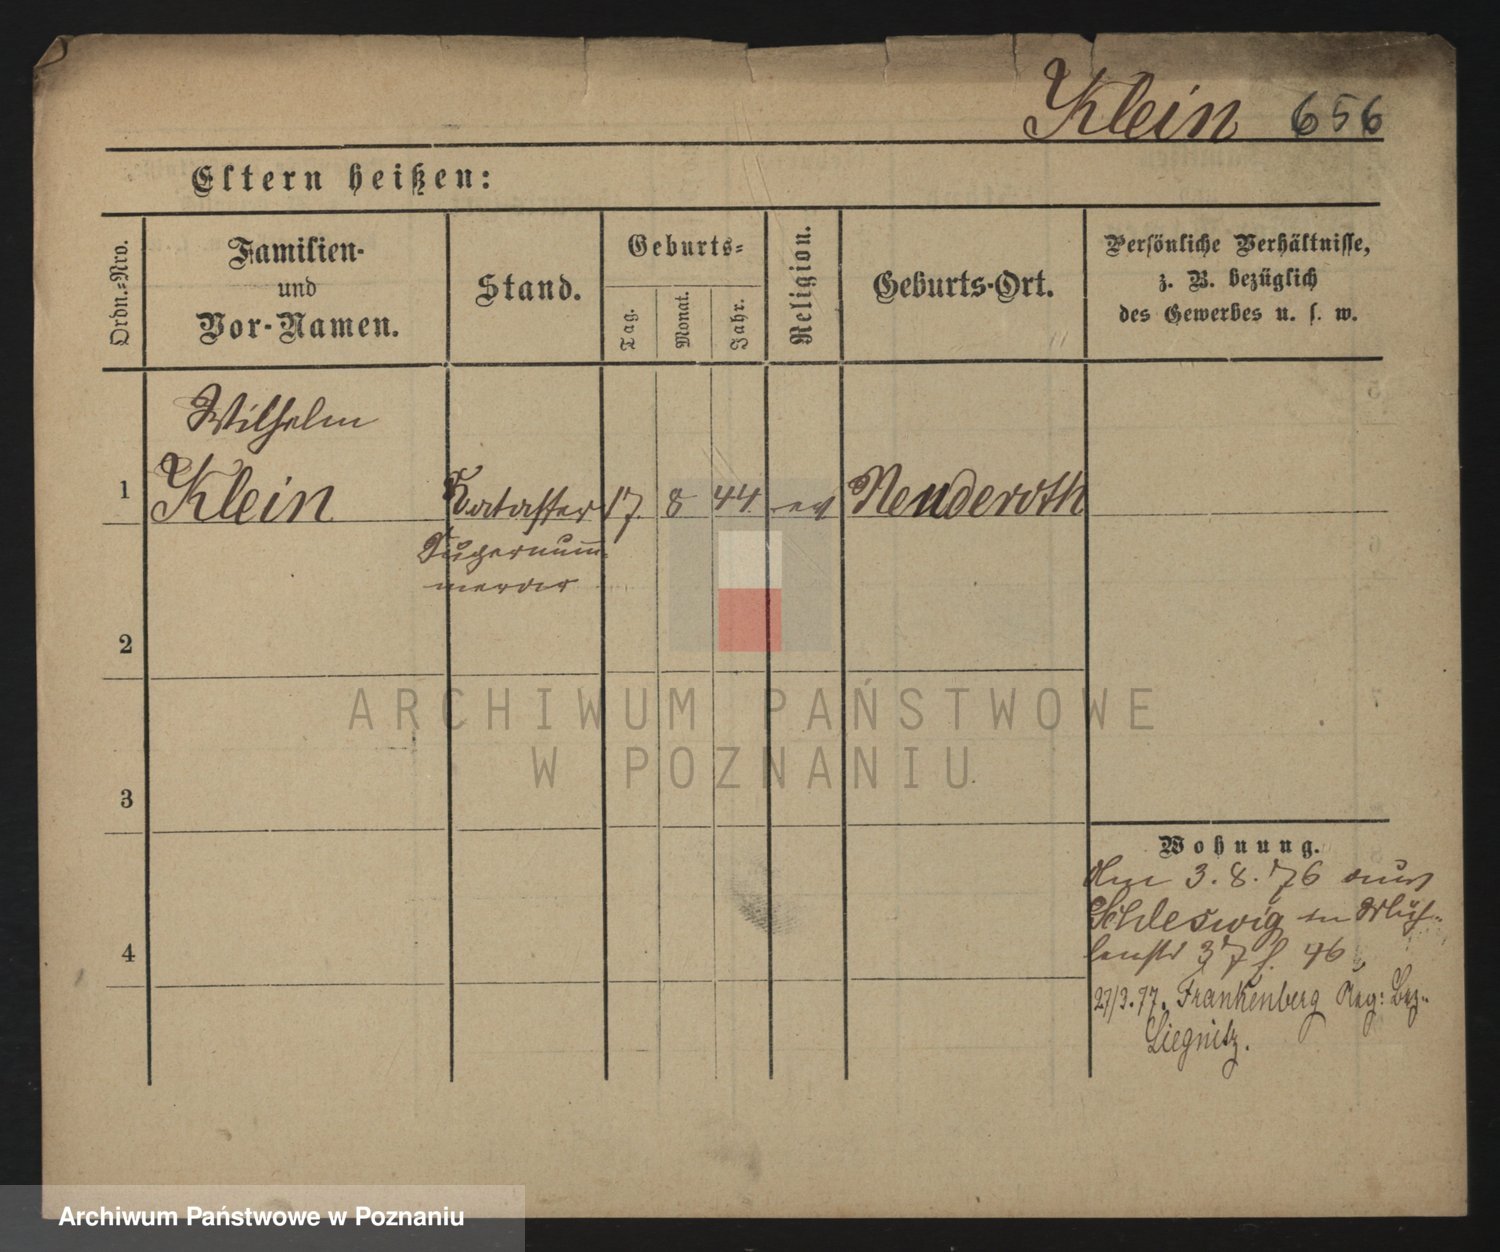 Klein 656
Eltern heißen:
Ordn.-Nro.
Familien-
und
Vor-Namen.
Stand.
Geburts-
Tag.
Monat.
Jahr.
Religion.
Geburts-Ort.
Persönliche Verhältnisse,
z. B. bezüglich
des Gewerbes u. s. w.
Wilhelm
1 Klein Kataster 17 8 44 ev Nenderoth
Supernum̄-
merar
2
3
4
Wohnung.
Am 3.8.76 aus
Schleswig in Müh-
lenstr 37 f. 46
27/3.77. Frankenberg Reg: Bez.
Liegnitz.
ARCHIWUM PAŃSTWOWE
W POZNANIU
Archiwum Państwowe w Poznaniu